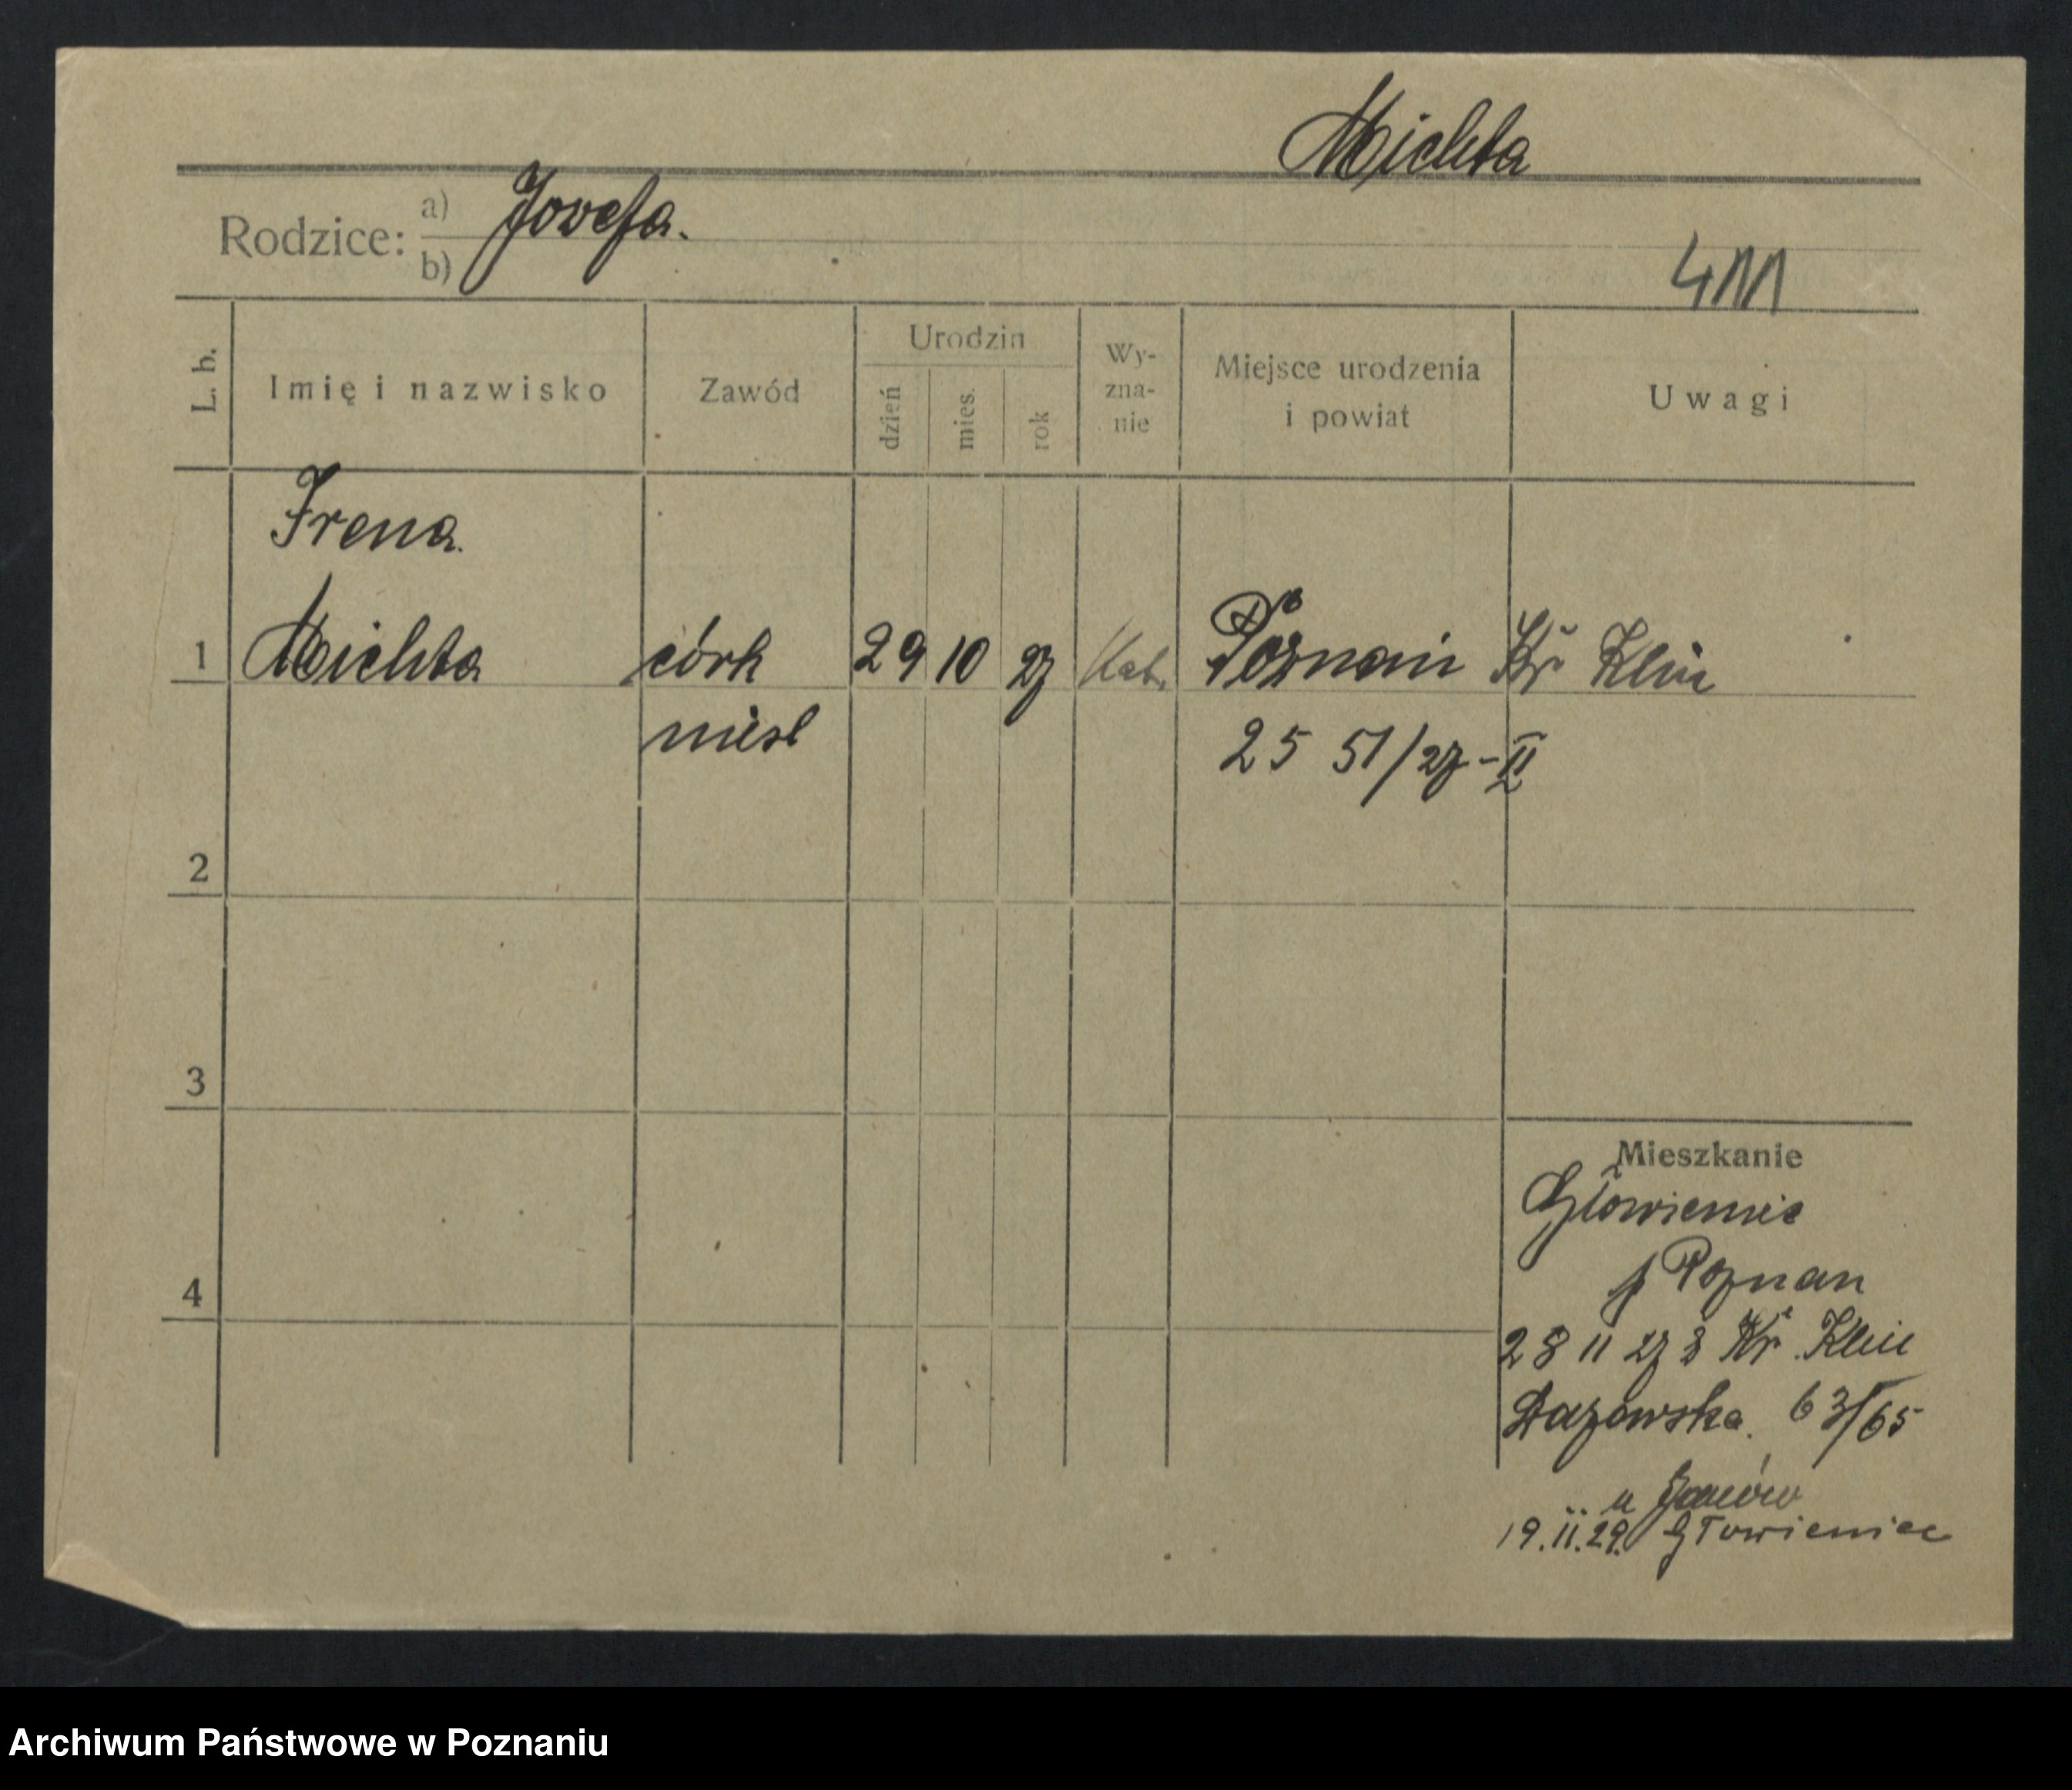 Michta
Rodzice: a) Jozefa.
b)
411
L. b.
Imię i nazwisko
Zawód
Urodzin
dzień
mies.
rok
Wy-
zna-
nie
Miejsce urodzenia
i powiat
Uwagi
Irena
1 Michta córk 29 10 27 Kat. Poznań Kr Klin
niesl 25 51/27-II
2
3
4
Mieszkanie
Główieniec
p Poznan
28 11 27 z Kr Klin
63/65
u
19.II.29. Głowieniec
Archiwum Państwowe w Poznaniu